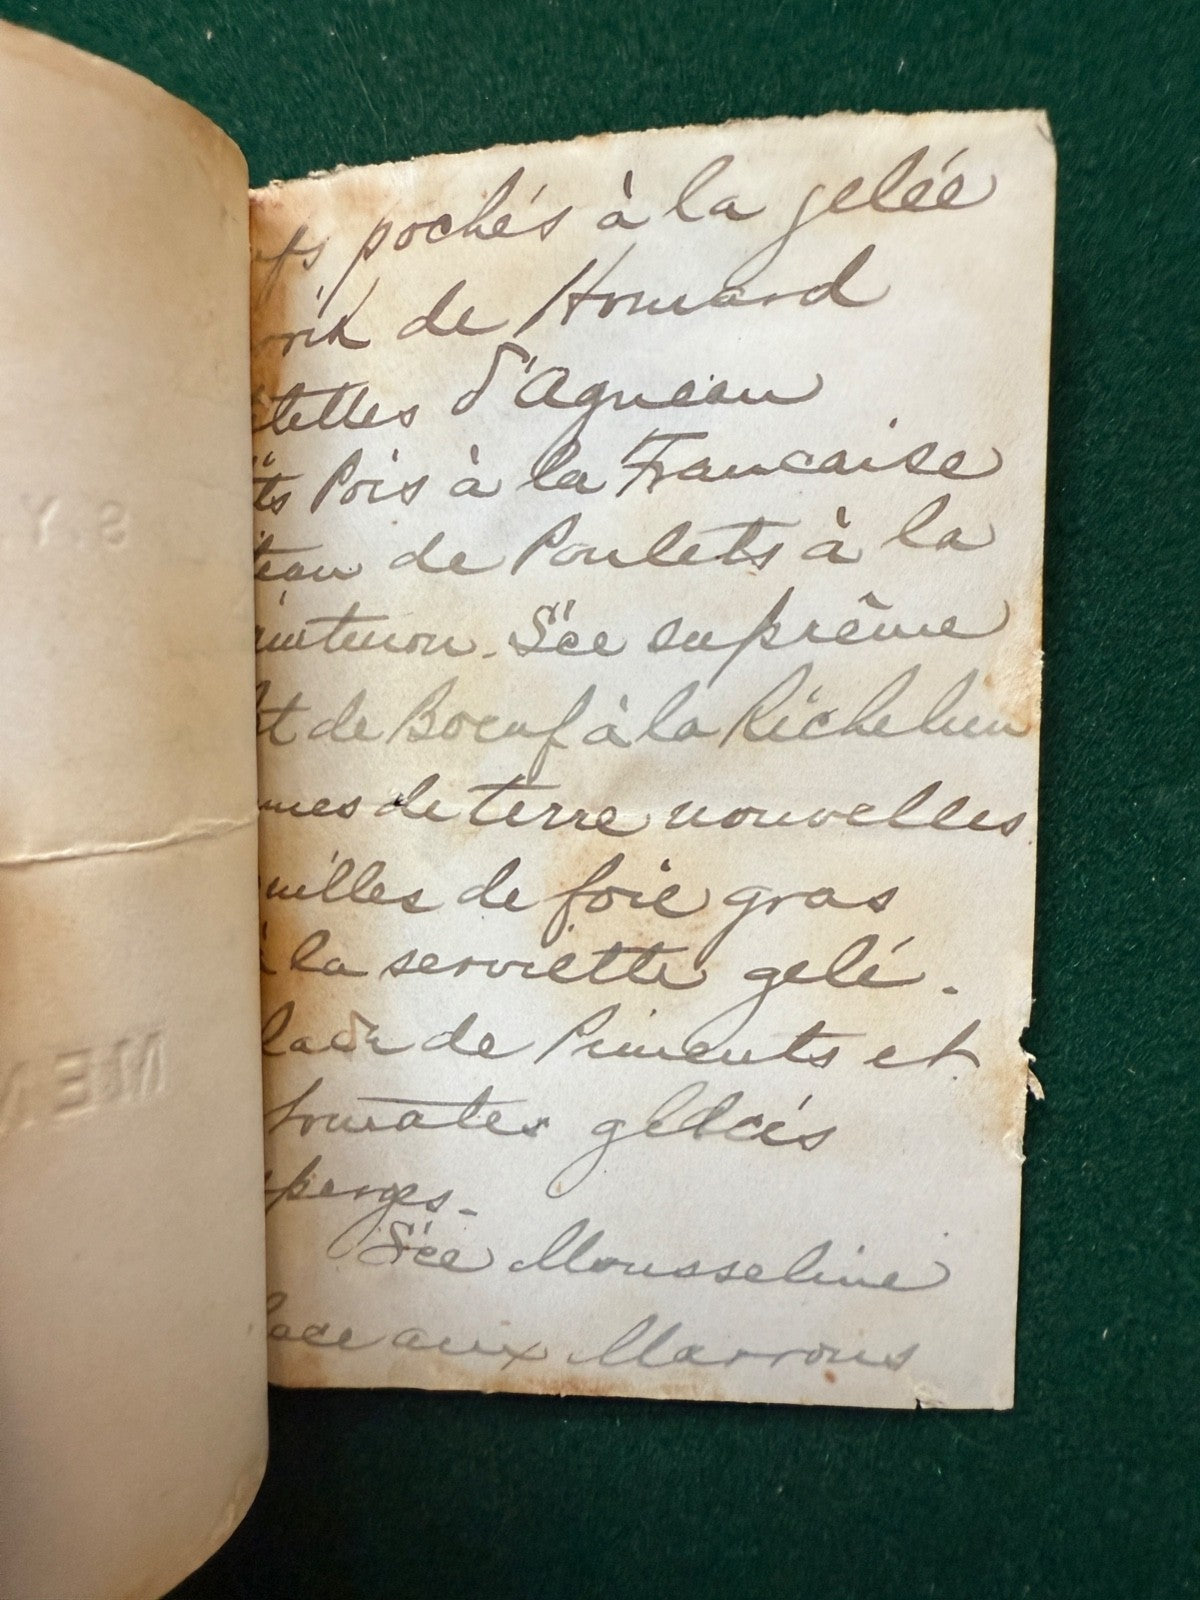 pochés à la gelée
de Homard
telles d'Agneau
ts Pois à la Francaise
teau de Poulets à la
intenon. Sce suprême
et de Boeuf à la Richelieu
mes de terre nouvelles
uilles de foie gras
à la serviette gelé.
lade de Piments et
tomates glacés
sperges.
Sce Mousseline
lace aux Marrons
S.Y.
MEN